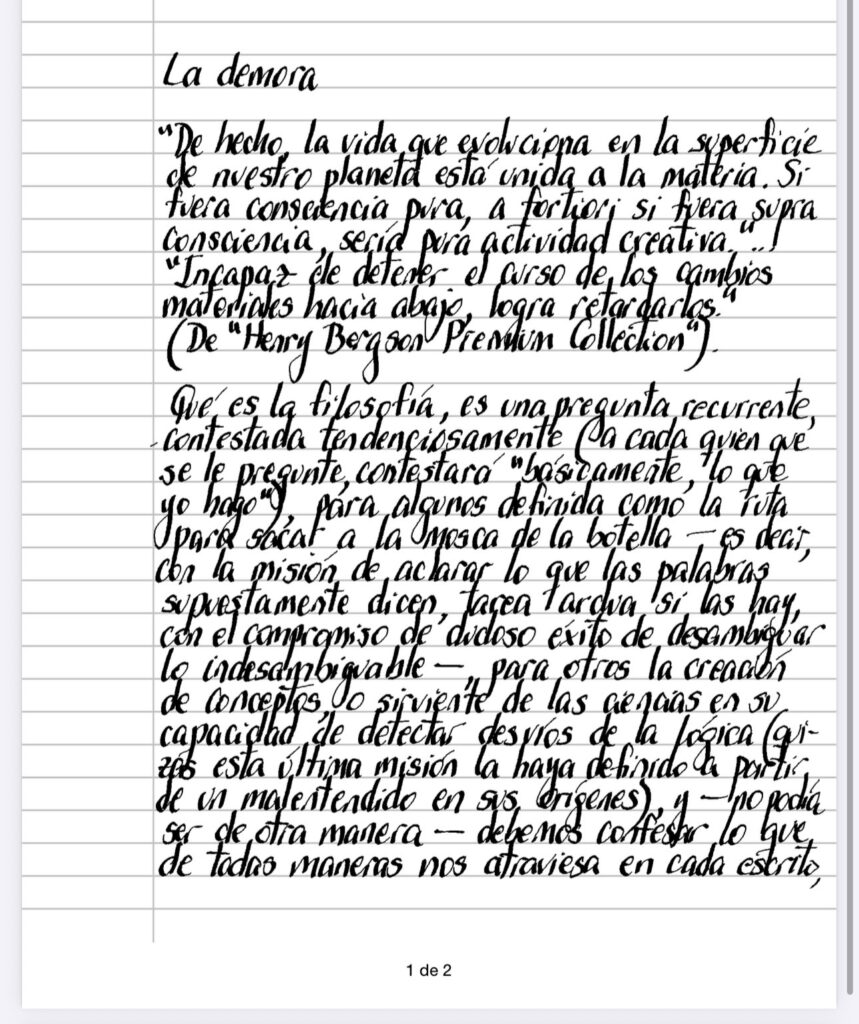 La demora
"De hecho, la vida que evoluciona en la superficie
de nuestro planeta está unida a la materia. Si
fuera consciencia pura, a fortiori si fuera supra
consciencia, sería pura actividad creativa."...
"Incapaz de detener el curso de los cambios
materiales hacia abajo, logra retardarlos."
(De "Henry Bergson Premium Collection").
Qué es la filosofía, es una pregunta recurrente,
contestada tendenciosamente (a cada quien que
se le pregunte, contestará "básicamente, lo que
yo hago"), para algunos definida como la ruta
para sacar a la mosca de la botella — es decir,
con la misión de aclarar lo que las palabras
supuestamente dicen, tarea ardua si las hay,
con el compromiso de dudoso éxito de desambiguar
lo indesambiguable —, para otros la creación
de conceptos, o sirviente de las ciencias en su
capacidad de detectar desvíos de la lógica (qui-
zás esta última misión la haya definido a partir
de un malentendido en sus orígenes), y — no podía
ser de otra manera — debemos confesar lo que
de todas maneras nos atraviesa en cada escrito,
1 de 2